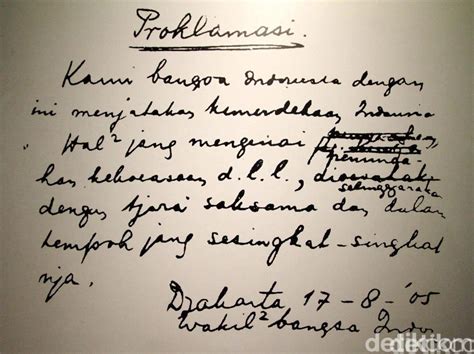 Proklamasi.
Kami bangsa Indonesia dengan
ini menjatakan kemerdekaan Indonesia
Hal² jang mengenai
peminda-
han kekoeasaan d.l.l., dioesahakan
selenggarakan
dengan tjara saksama dan dalam
tempoh jang sesingkat-singkat
nja.
Djakarta 17-8-'05
Wakil² bangsa Indon
detikcom